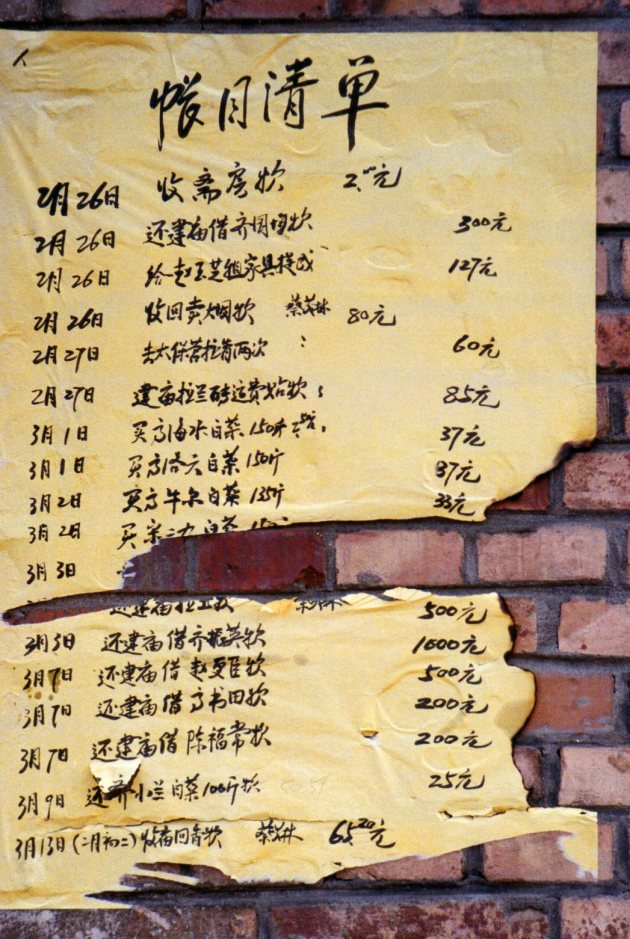 帐目清单
2月26日 收斋房款 2.00元
2月26日 还建庙借齐国均款 300元
2月26日 给赵玉芝租家具提成 127元
2月26日 收回卖烟款 蔡茂林 80元
2月27日 去太保营拉 两次: 60元
2月27日 建庙拉兰砖运费 款: 85元
3月1日 买高海水白菜150斤 37元
3月1日 买高 白菜150斤 37元
3月2日 买高牛 白菜135斤 33元
3月2日 买宋 白菜
3月3日
还建庙 款 500元
3月3日 还建庙借齐 英款 1000元
3月7日 还建庙借赵 臣款 500元
3月7日 还建庙借高书田款 200元
3月7日 还建庙借陈福常款 200元
3月9日 还齐小兰白菜100斤款 25元
3月13日(二月初二)收庙回香款 蔡茂林 65.20元